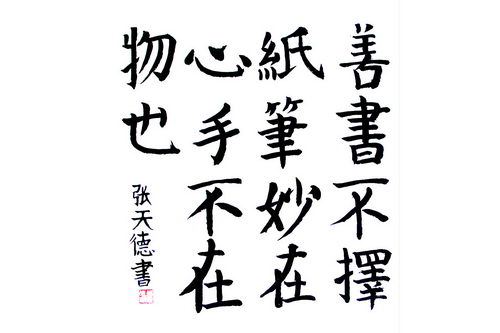 善書不擇
紙筆妙在
心手不在
物也
张天德書